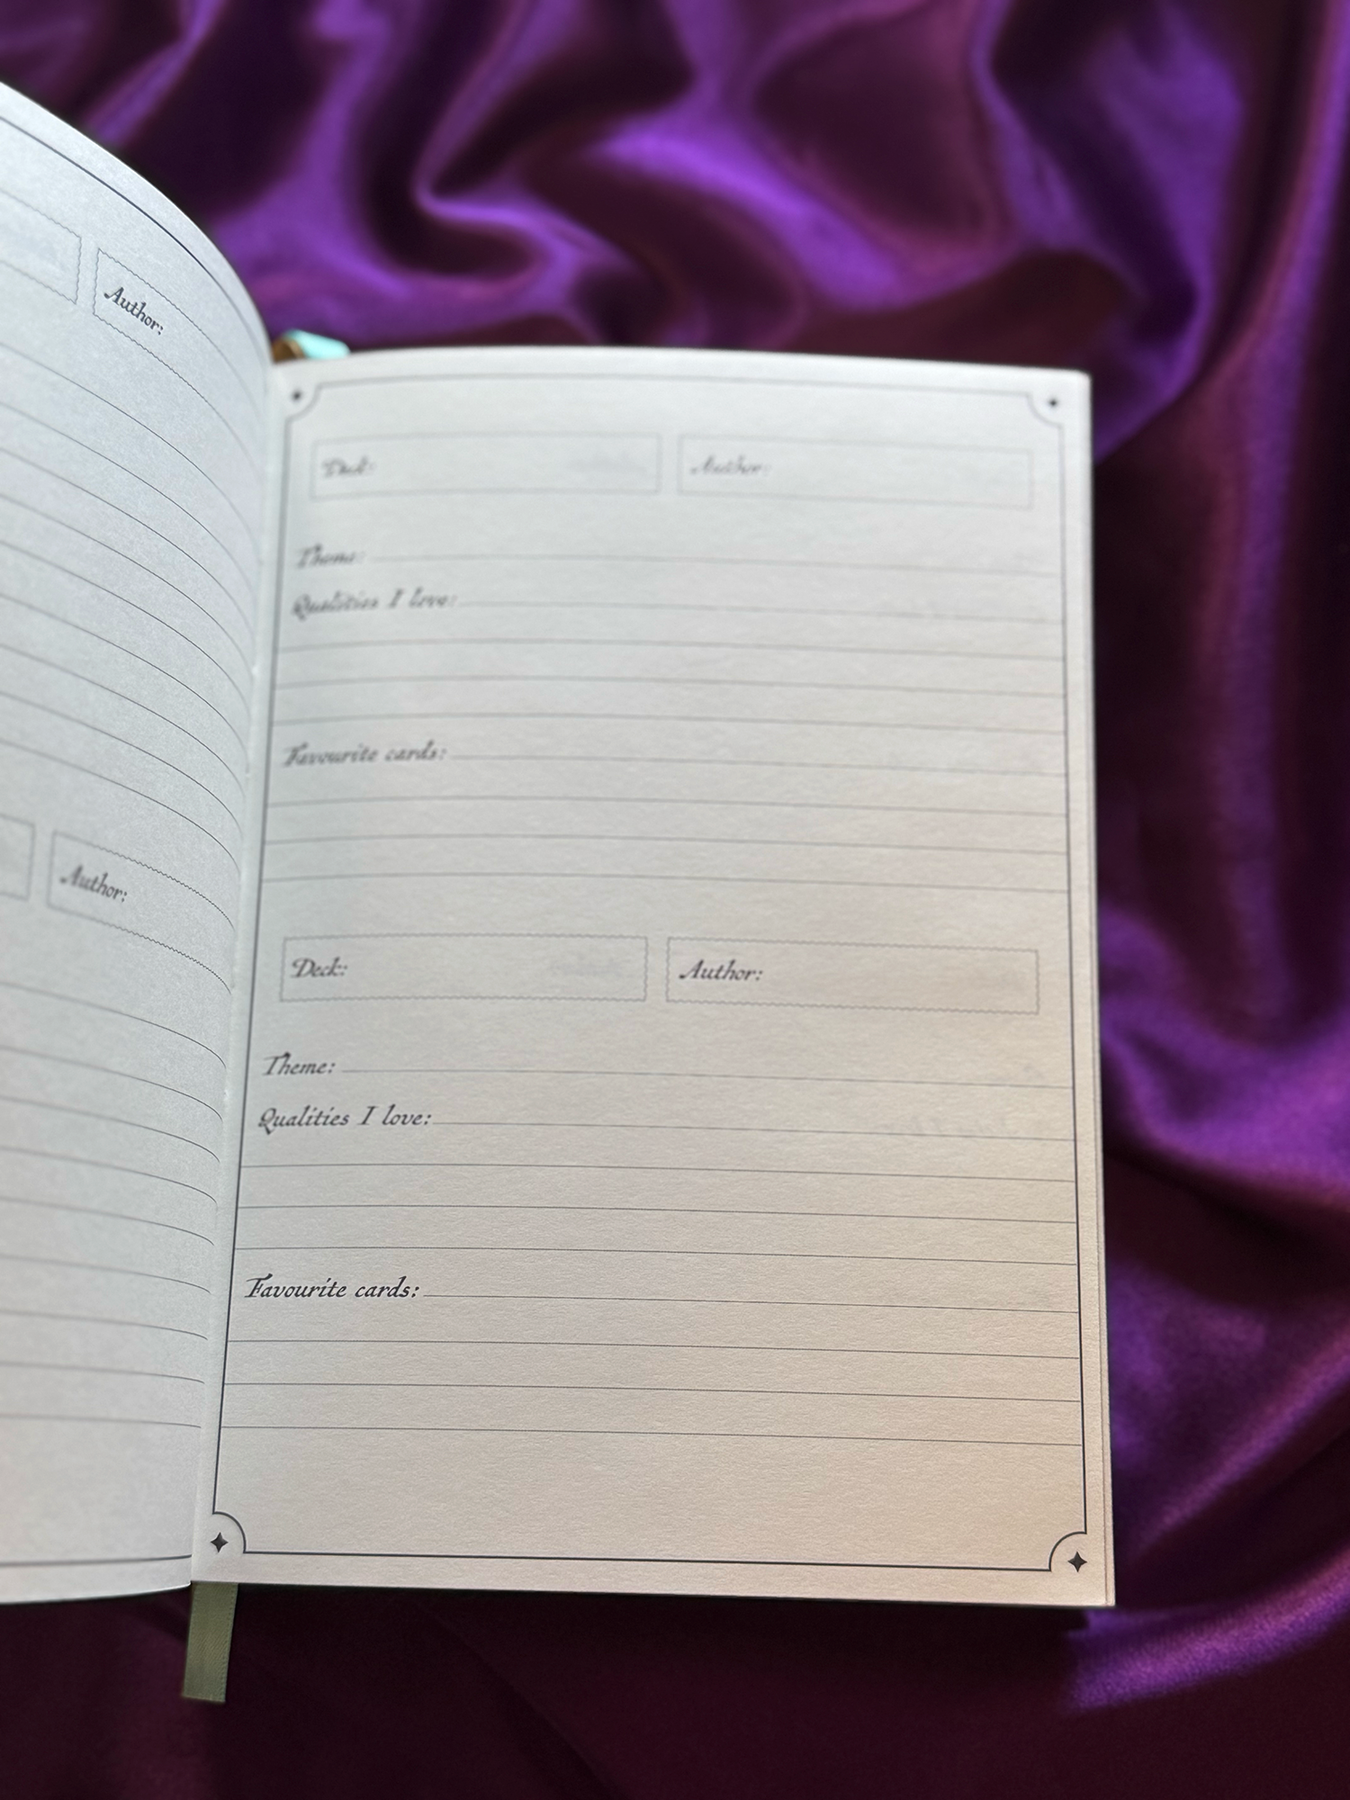 Author:
Author:
Deck:
Author:
Theme:
Qualities I love:
Favourite cards:
Deck:
Author:
Theme:
Qualities I love:
Favourite cards: